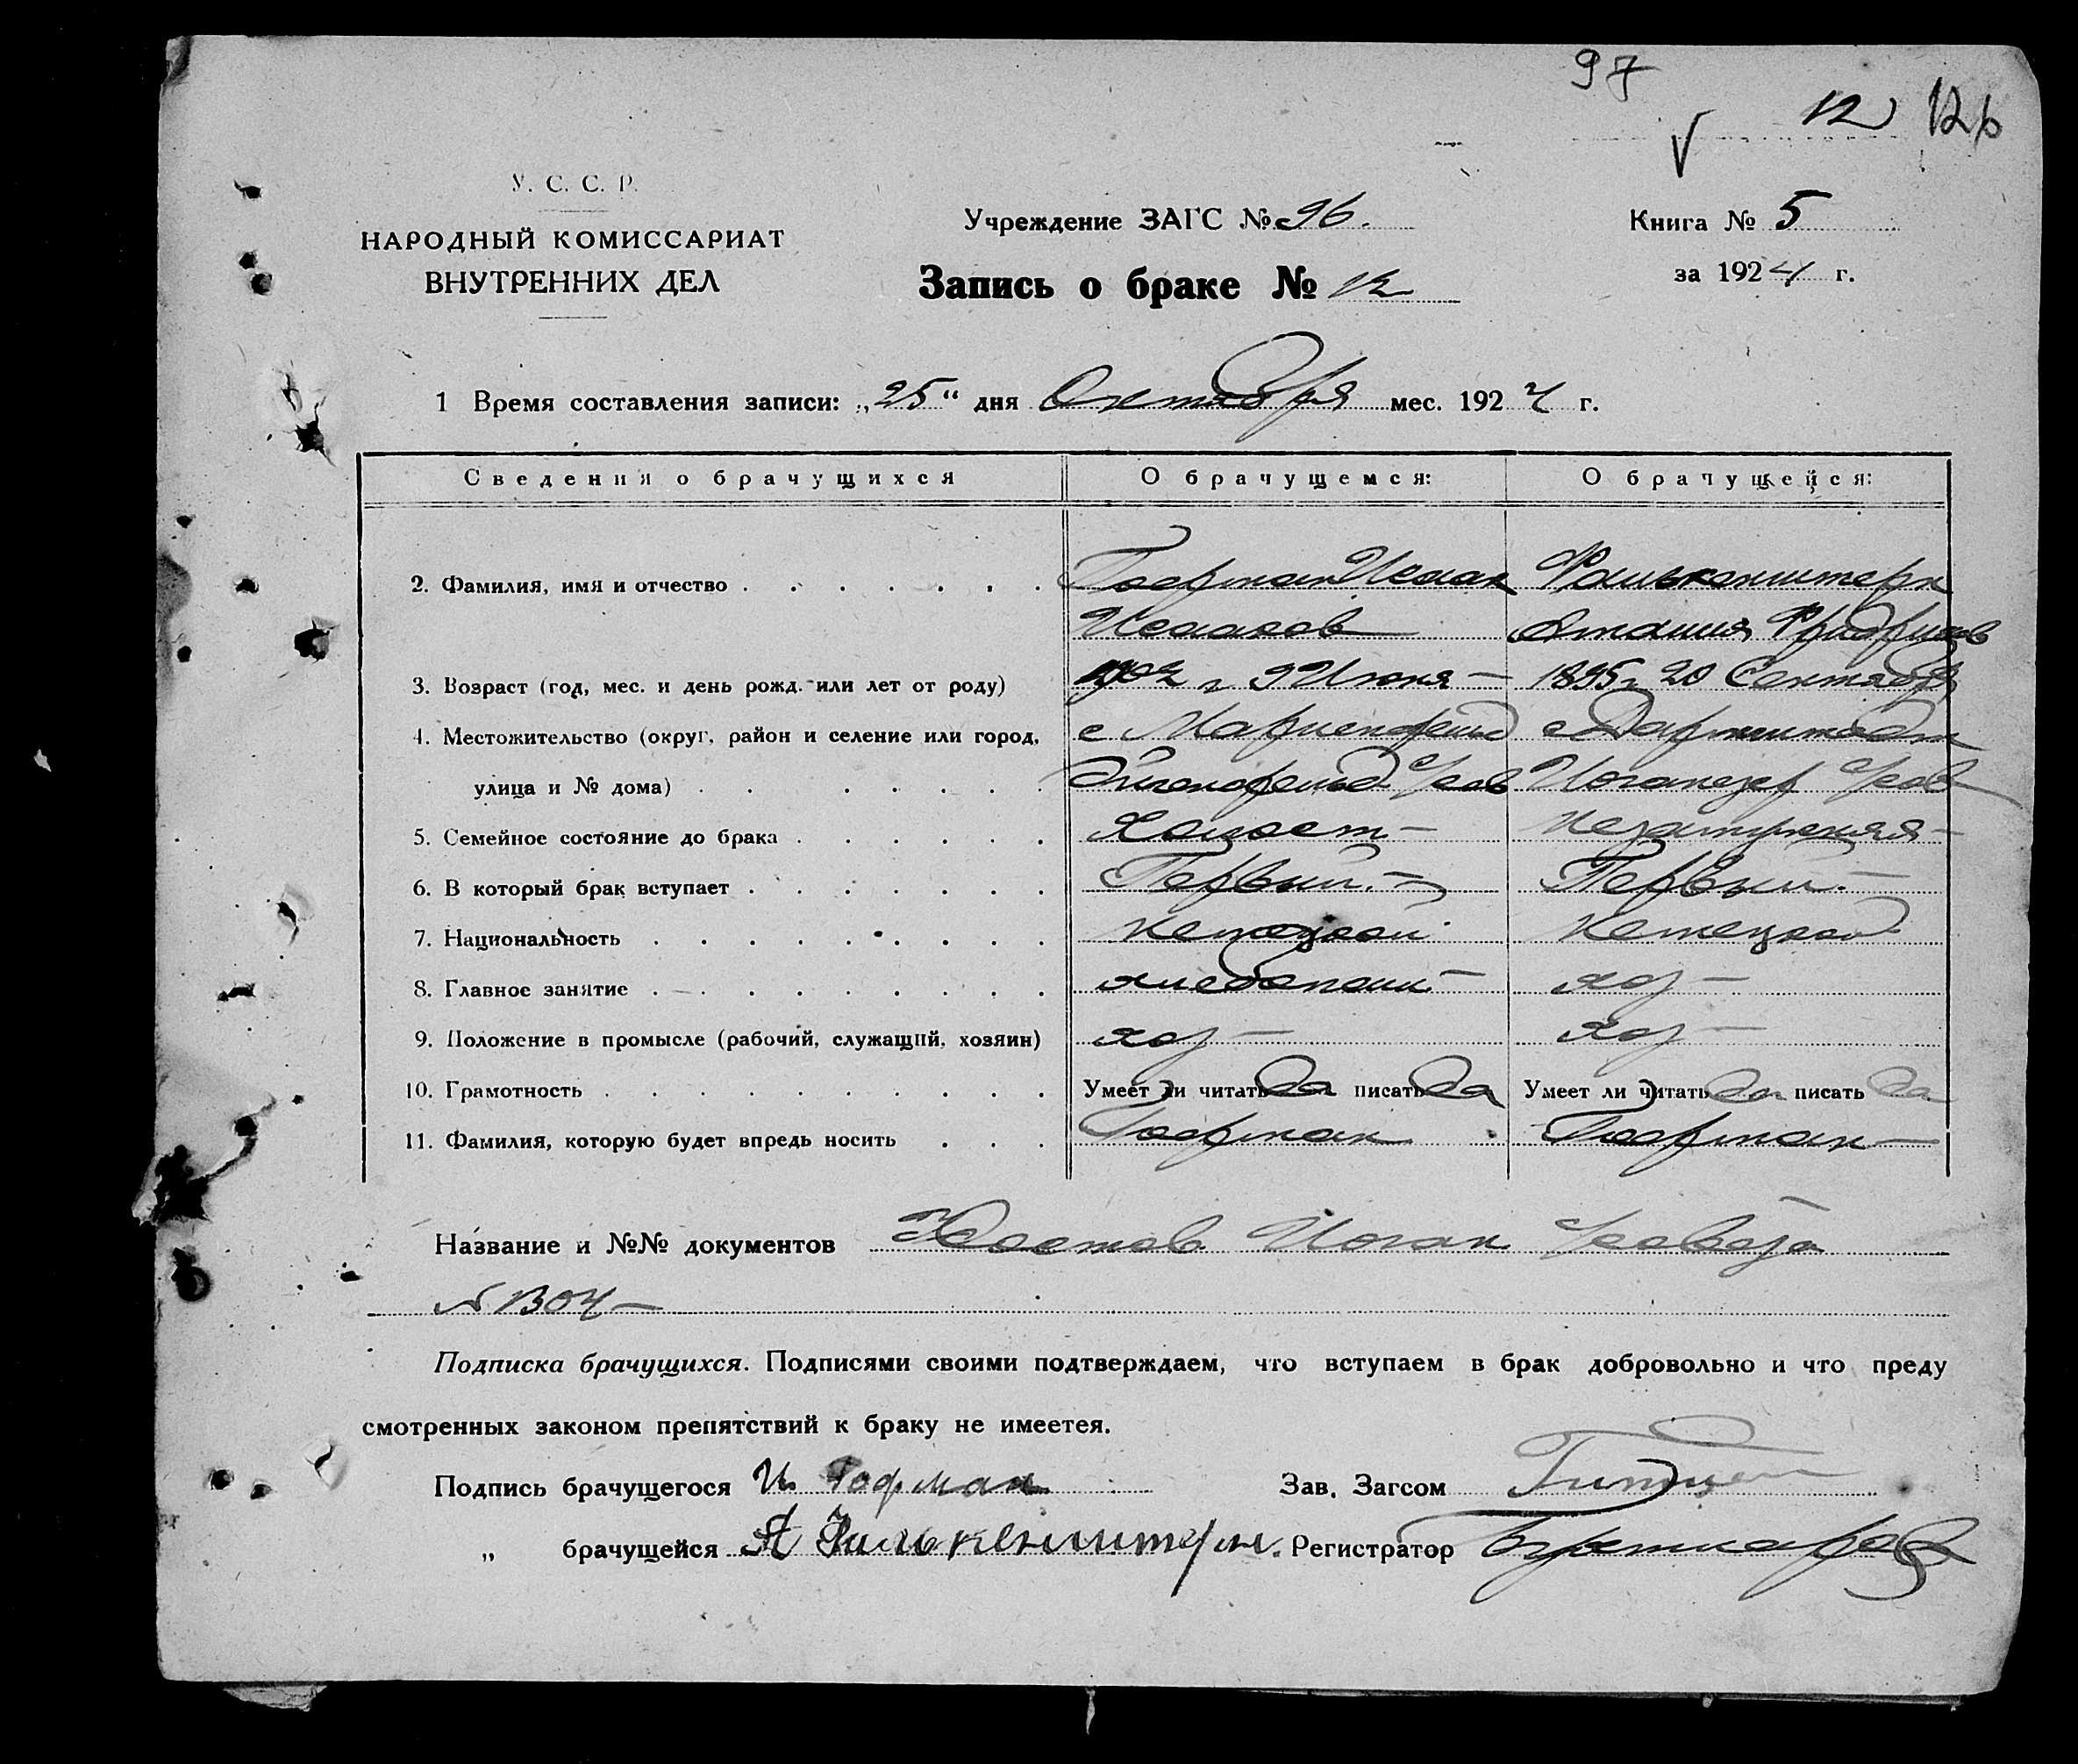 97
12 126
У. С. С. Р.
НАРОДНЫЙ КОМИССАРИАТ
ВНУТРЕННИХ ДЕЛ
Учреждение ЗАГС № 96.
Книга № 5
Запись о браке № 12
за 1924 г.
1 Время составления записи: „25“ дня Октября мес. 1924 г.
Сведения о брачущихся О брачущемся: О брачущейся:
2. Фамилия, имя и отчество Гофман Исаак Фалькенштерн
Исааков Фридрихов
3. Возраст (год, мес. и день рожд. или лет от роду) 1902 г 9 Июня 1895 г 20 Сентября
4. Местожительство (округ, район и селение или город, с Мариенфельд с Дармштадт
улица и № дома) Эйгенфельд
5. Семейное состояние до брака Холост Незамужняя
6. В который брак вступает Первый Первый
7. Национальность немецкой немецкой
8. Главное занятие хлебопаш хоз
9. Положение в промысле (рабочий, служащий, хозяин) хоз хоз
10. Грамотность Умеет ли читать да писать да Умеет ли читать да писать да
11. Фамилия, которую будет впредь носить Гофман Гофман
Название и №№ документов
№ 1304
Подписка брачущихся. Подписями своими подтверждаем, что вступаем в брак добровольно и что преду
смотренных законом препятствий к браку не имеетея.
Подпись брачущегося И Гофман Зав. Загсом
„ брачущейся А Фалькенштерн. Регистратор